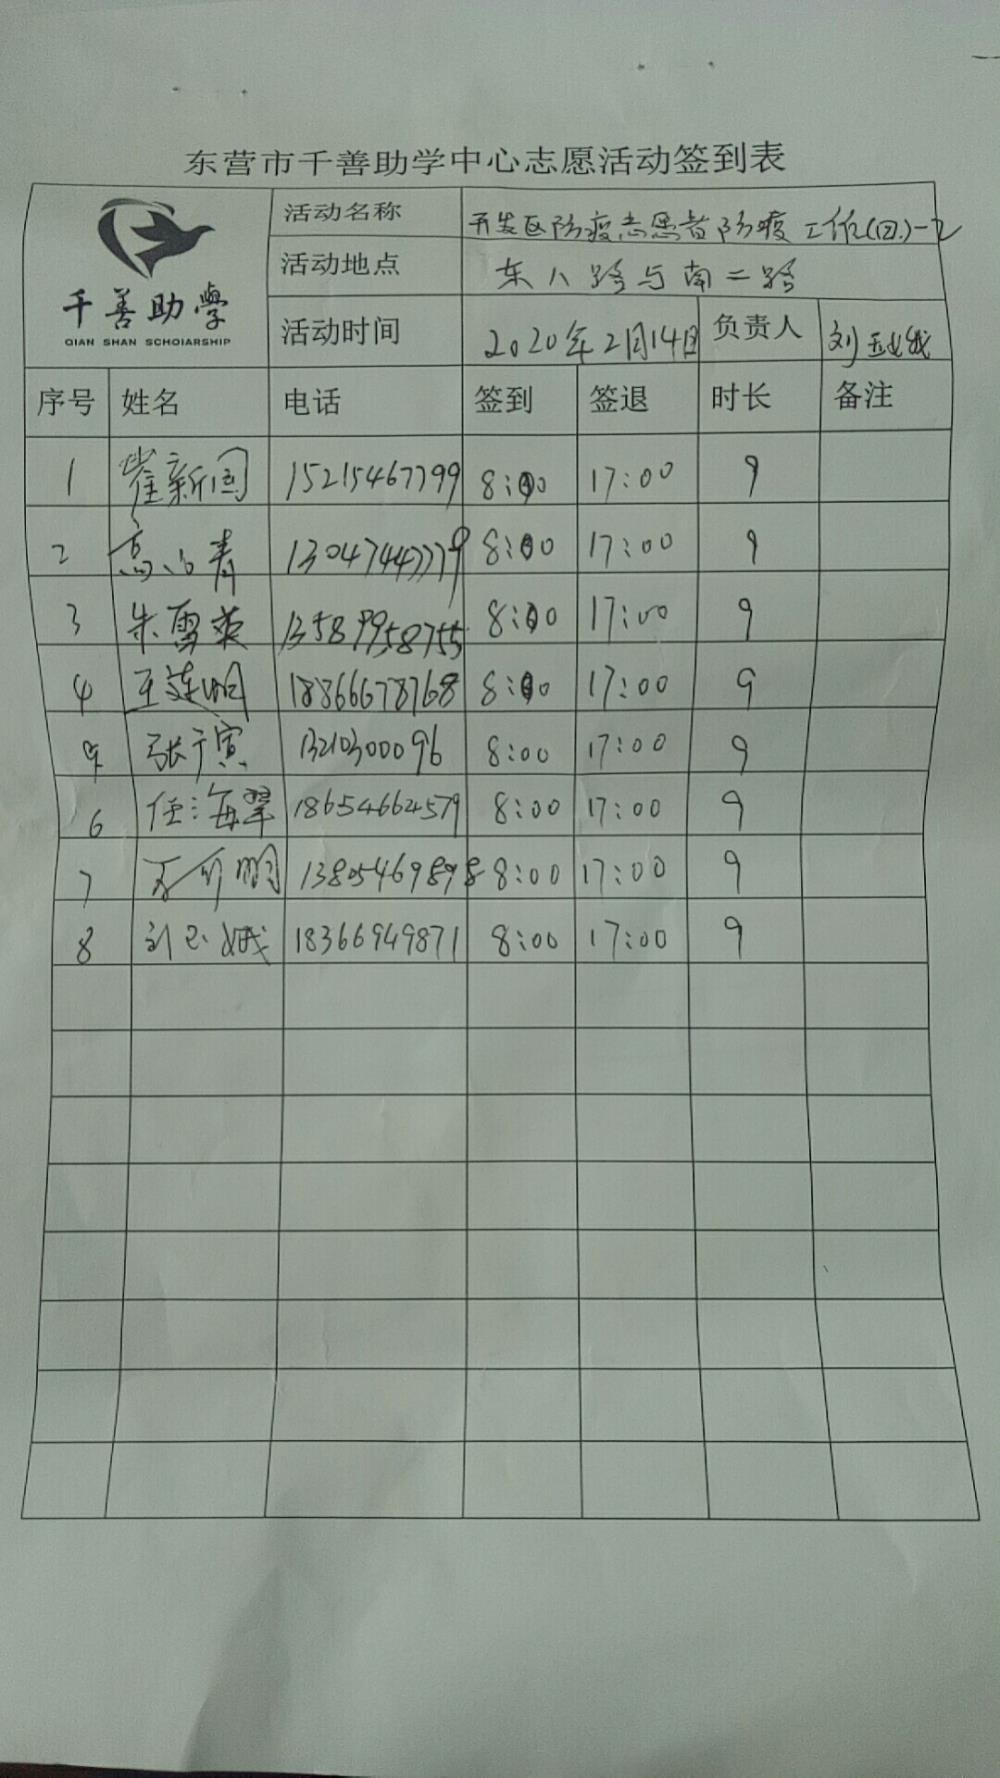 东营市千善助学中心志愿活动签到表
千善助學
QIAN SHAN SCHOIARSHIP
活动名称 开发区防疫志愿者防疫工作(四)-2
活动地点 东八路与南二路
活动时间 2020年2月14日 负责人 刘玉娥
序号 姓名 电话 签到 签退 时长 备注
1 崔新国 15215467799 8:00 17:00 9
2 高 青 13047447779 8:00 17:00 9
3 朱雪英 13589958755 8:00 17:00 9
4 王莲明 18866678768 8:00 17:00 9
5 张于寅 13210300096 8:00 17:00 9
6 任海翠 18654664579 8:00 17:00 9
7 万可明 13805469898 8:00 17:00 9
8 刘玉娥 18366949871 8:00 17:00 9